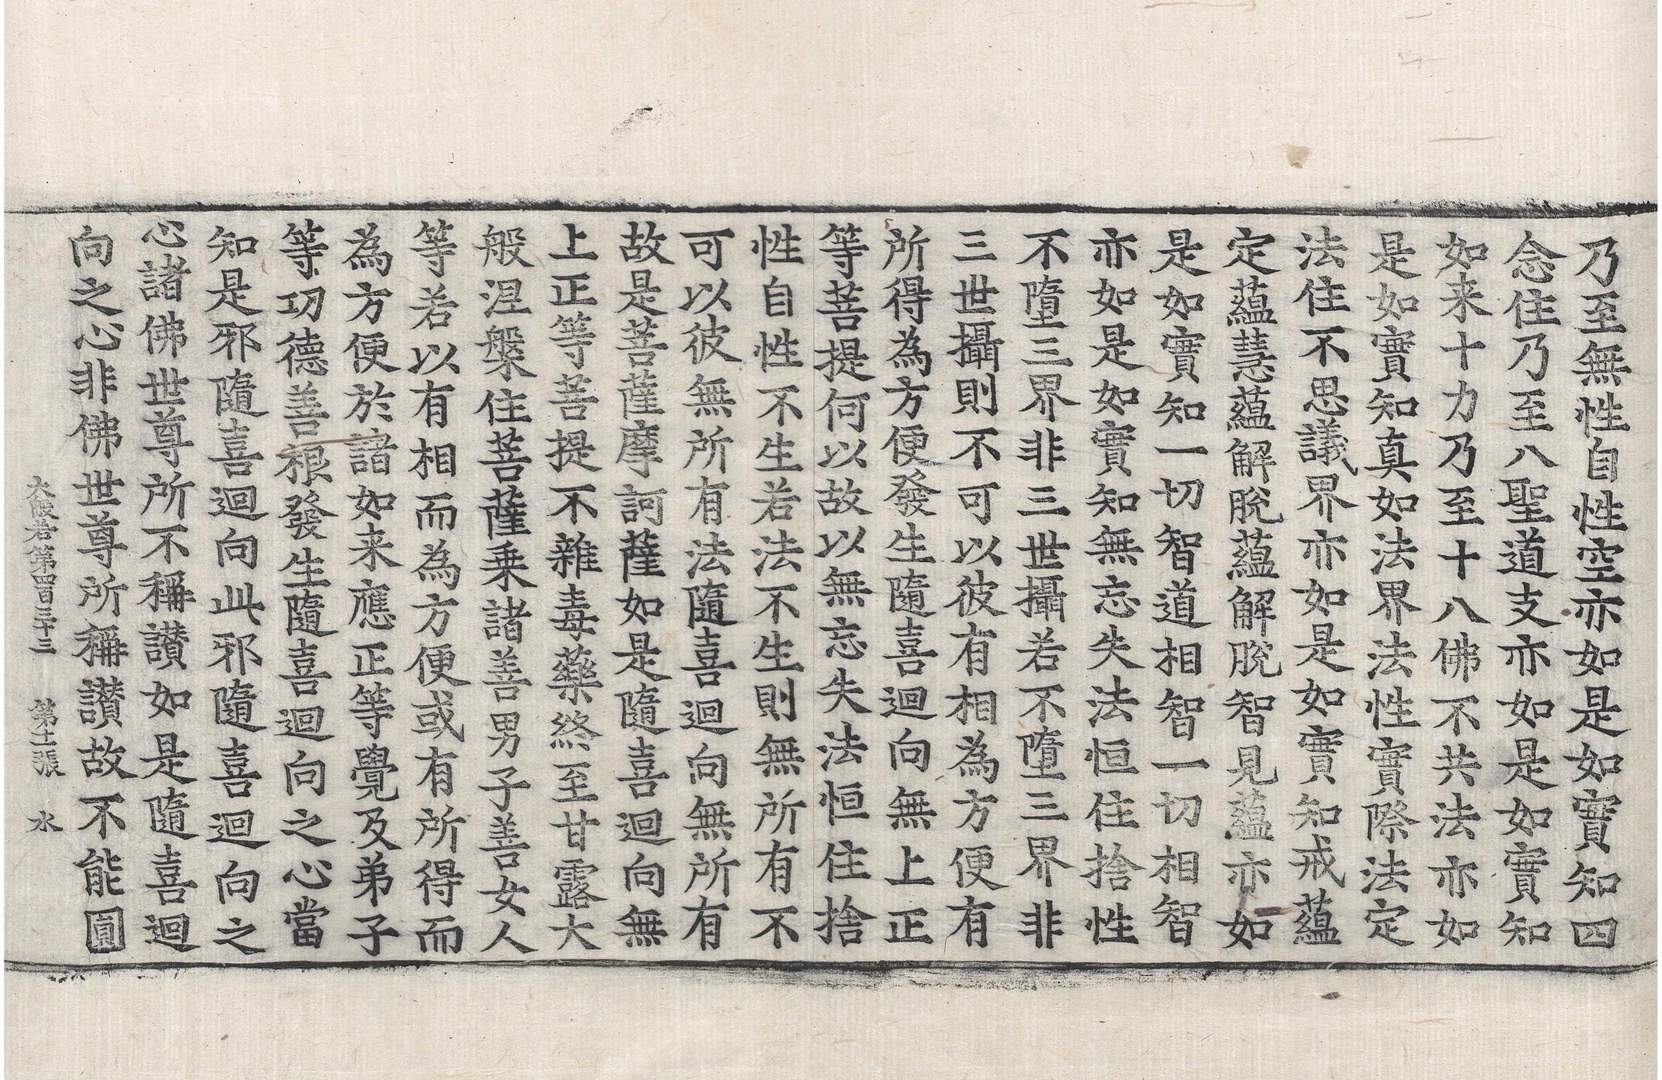 乃至無性自性空亦如是如實知四
念住乃至八聖道支亦如是如實知
如来十力乃至十八佛不共法亦如
是如實知真如法界法性實際法定
法住不思議界亦如是如實知戒蘊
定蘊慧蘊解脫蘊解脫智見蘊亦如
是如實知一切智道相智一切相智
亦如是如實知無忘失法恒住捨性
不墮三界非三世攝若不墮三界非
三世攝則不可以彼有相為方便有
所得為方便發生隨喜迴向無上正
等菩提何以故以無忘失法恒住捨
性自性不生若法不生則無所有不
可以彼無所有法隨喜迴向無所有
故是菩薩摩訶薩如是隨喜迴向無
上正等菩提不雜毒藥終至甘露大
般涅槃住菩薩乘諸善男子善女人
等若以有相而為方便或有所得而
為方便於諸如来應正等覺及弟子
等功德善根發生隨喜迴向之心當
知是邪隨喜迴向此邪隨喜迴向之
心諸佛世尊所不稱讃如是隨喜迴
向之心非佛世尊所稱讃故不能圓
大般若第四百三十三 第十一張 水